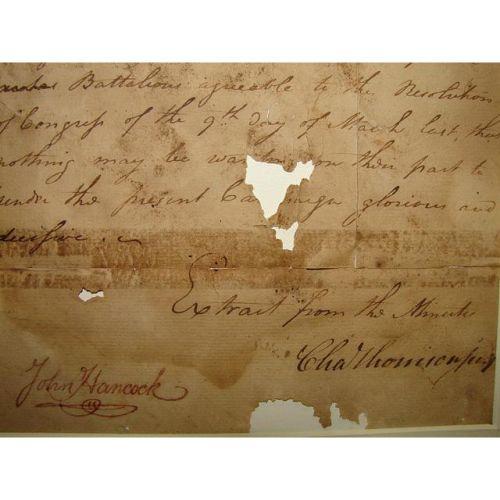 Battalions agreeable to the Resolution
of Congress of the 9th day of March last, that
nothing may be wanting on their part to
render the present Campaign glorious and
decisive.
Extract from the Minutes
Cha Thomson secy
John Hancock